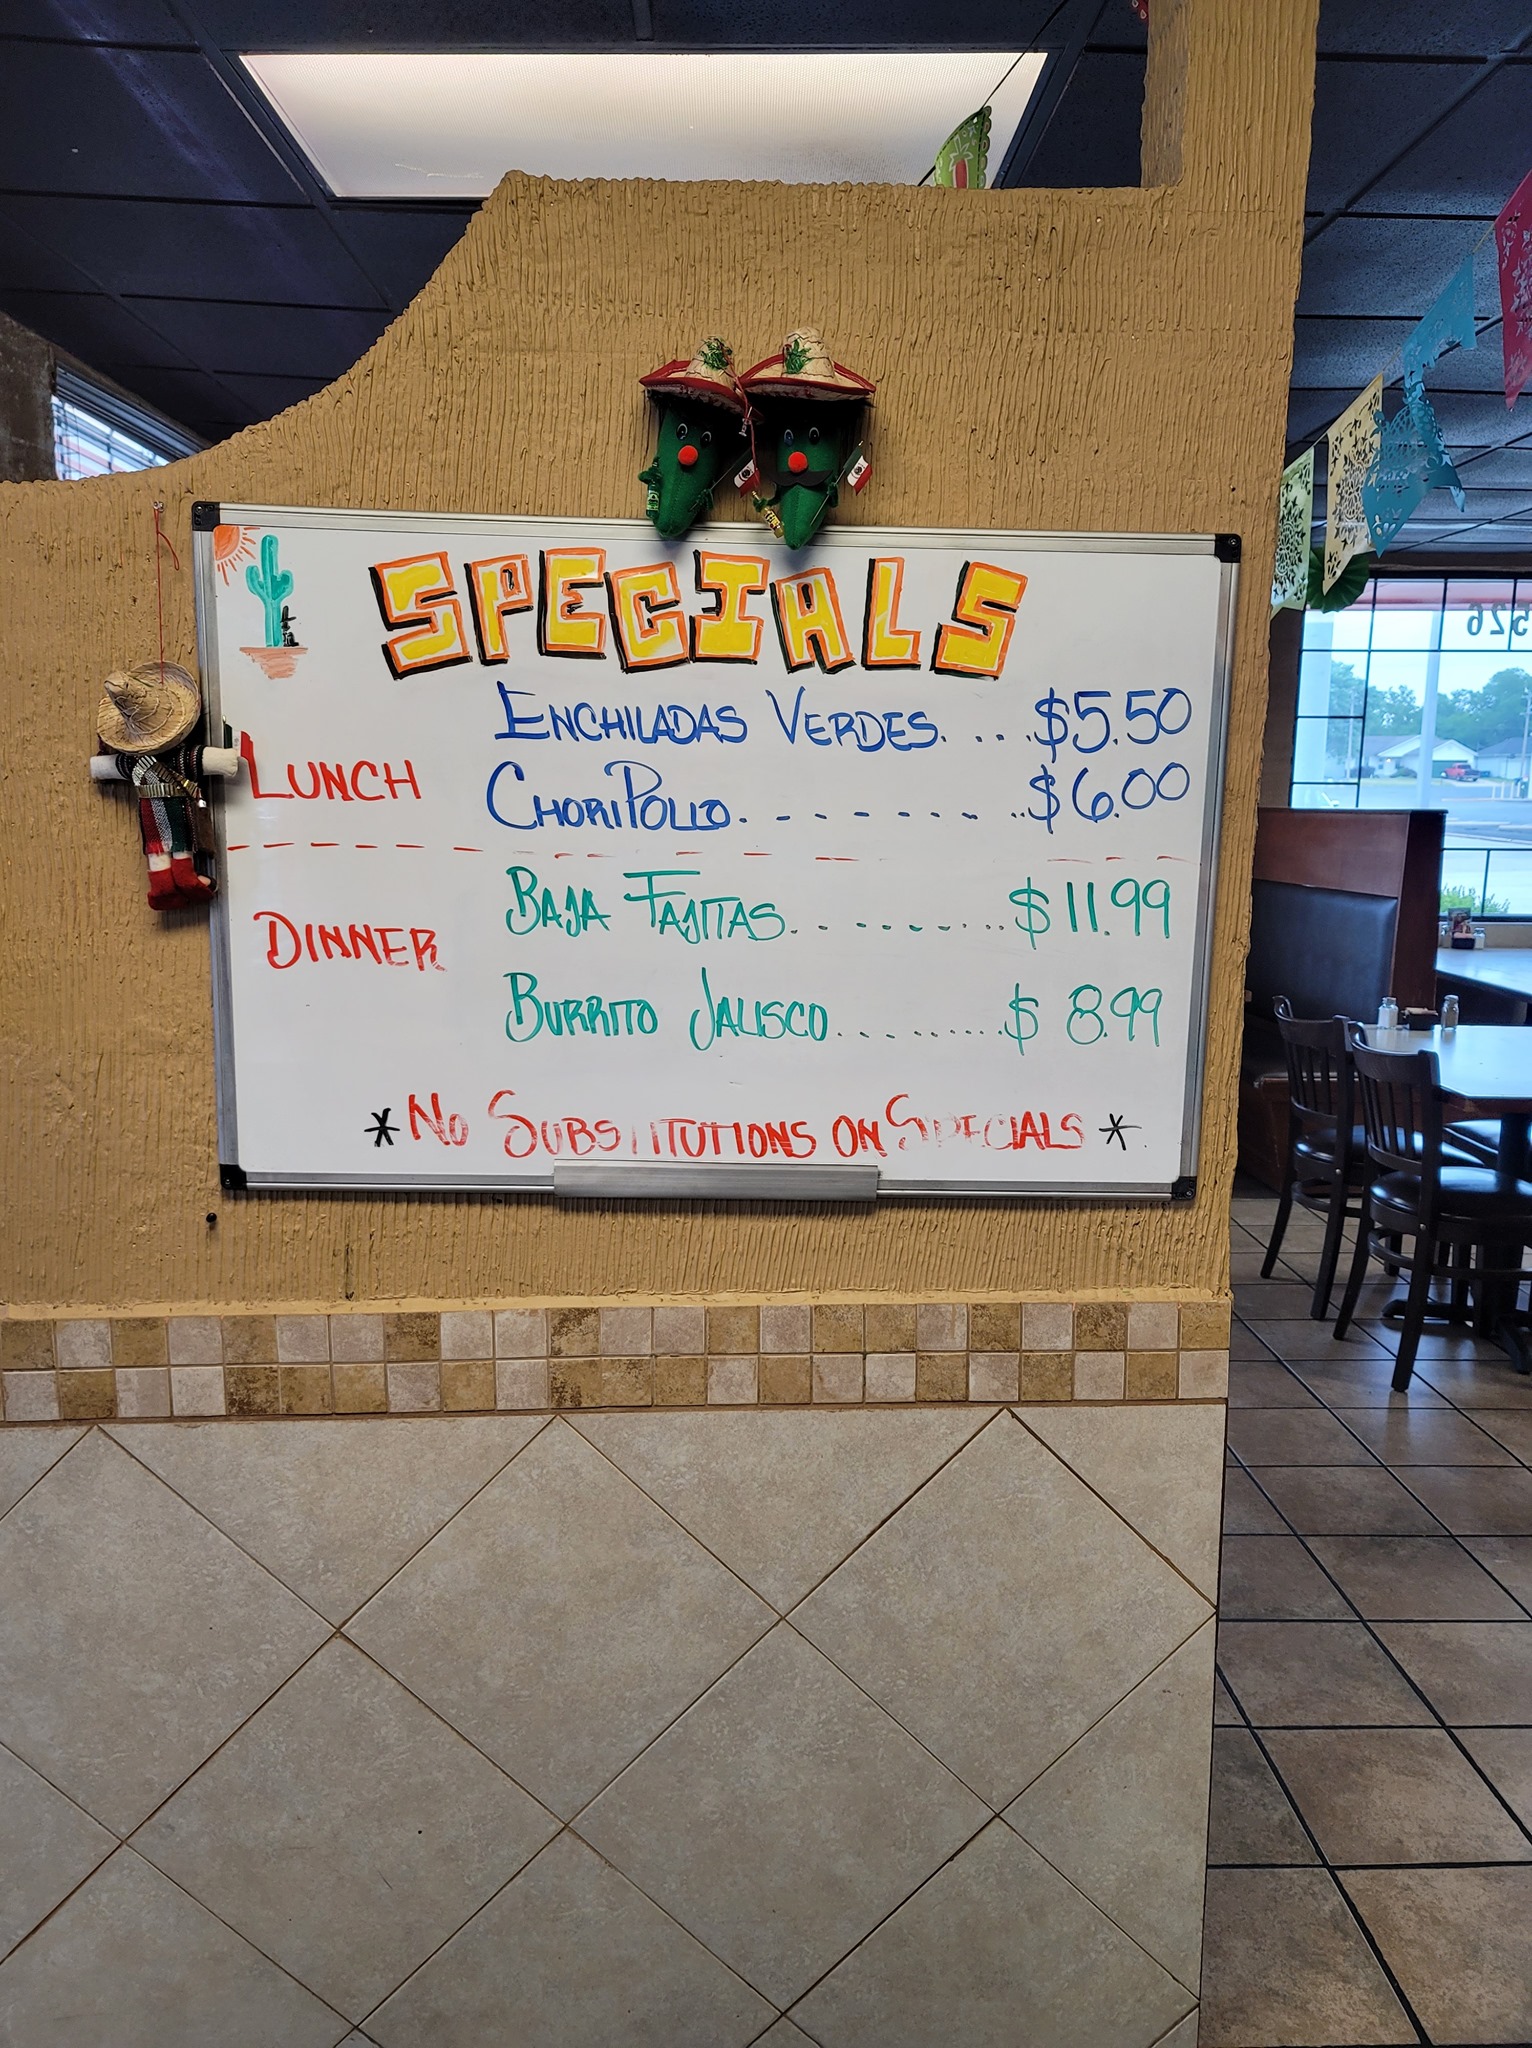 SPECIALS
ENCHILADAS VERDES. ... $5.50
LUNCH
CHORIPOLLO. . . . . . . . . .. $6.00
BAJA FAJITAS. . . . . . . . ... $11.99
DINNER
BURRITO JALISCO. . . . . . . .... $ 8.99
*NO SUBSTITUTIONS ON SPECIALS*